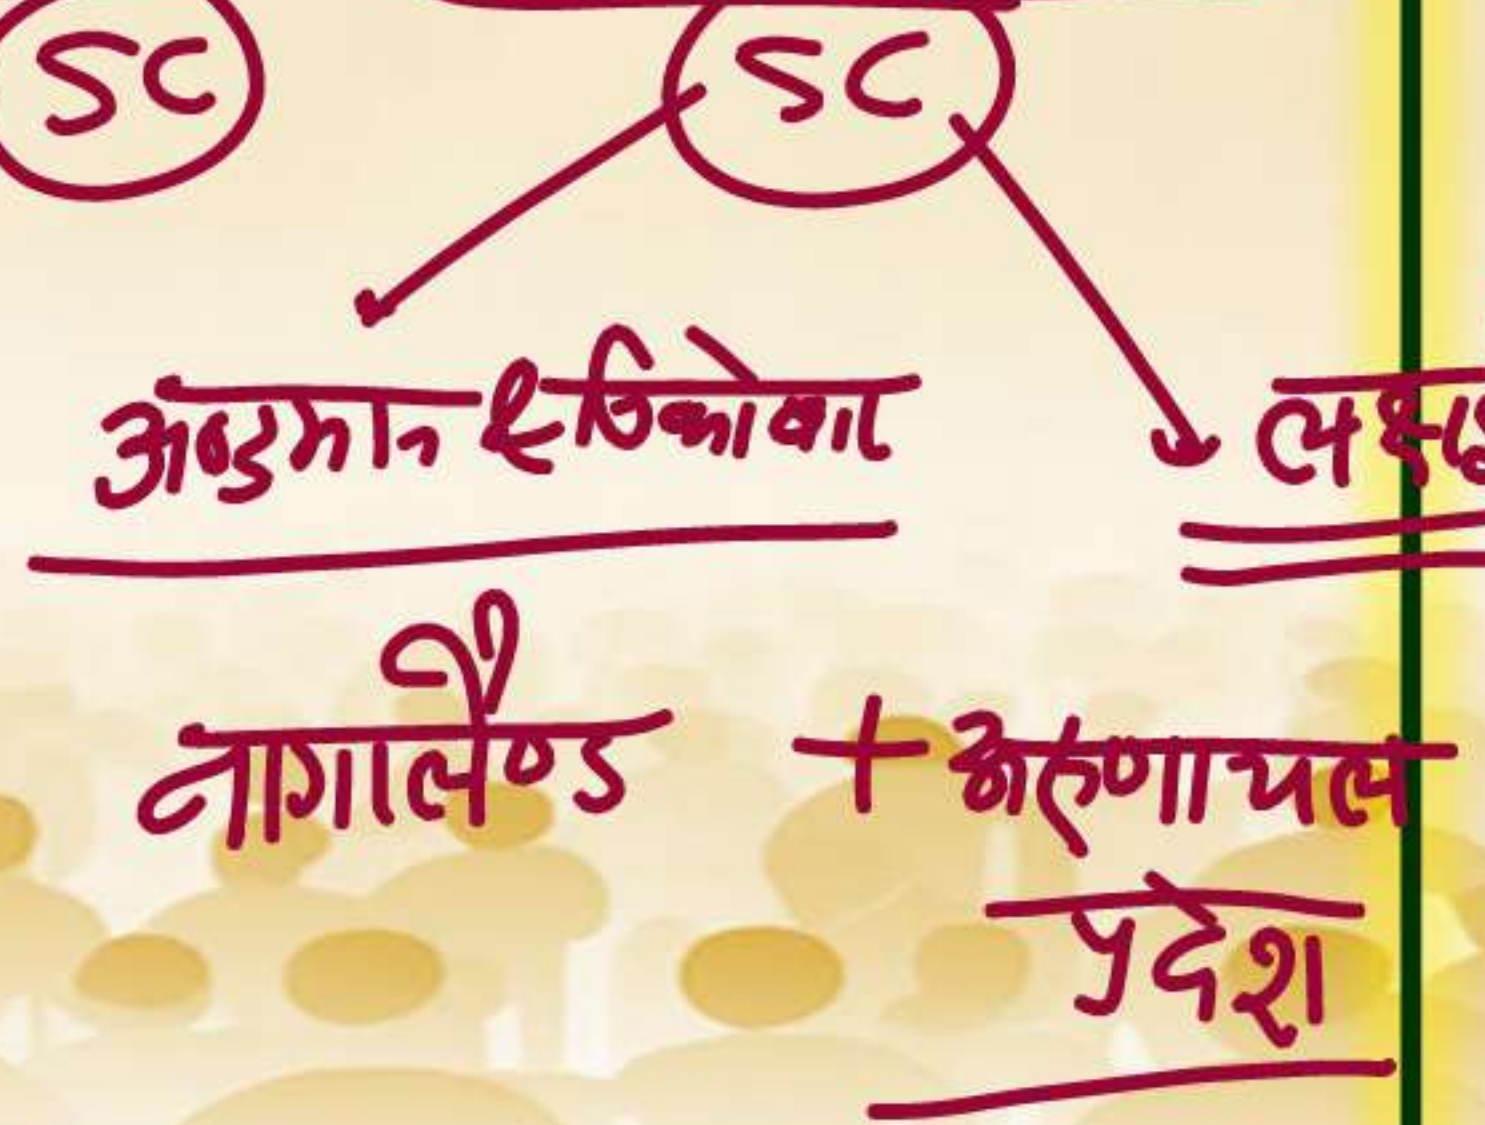 SC SC
अण्डमान & निकोबार
नागालैण्ड + अरुणाचल
प्रदेश